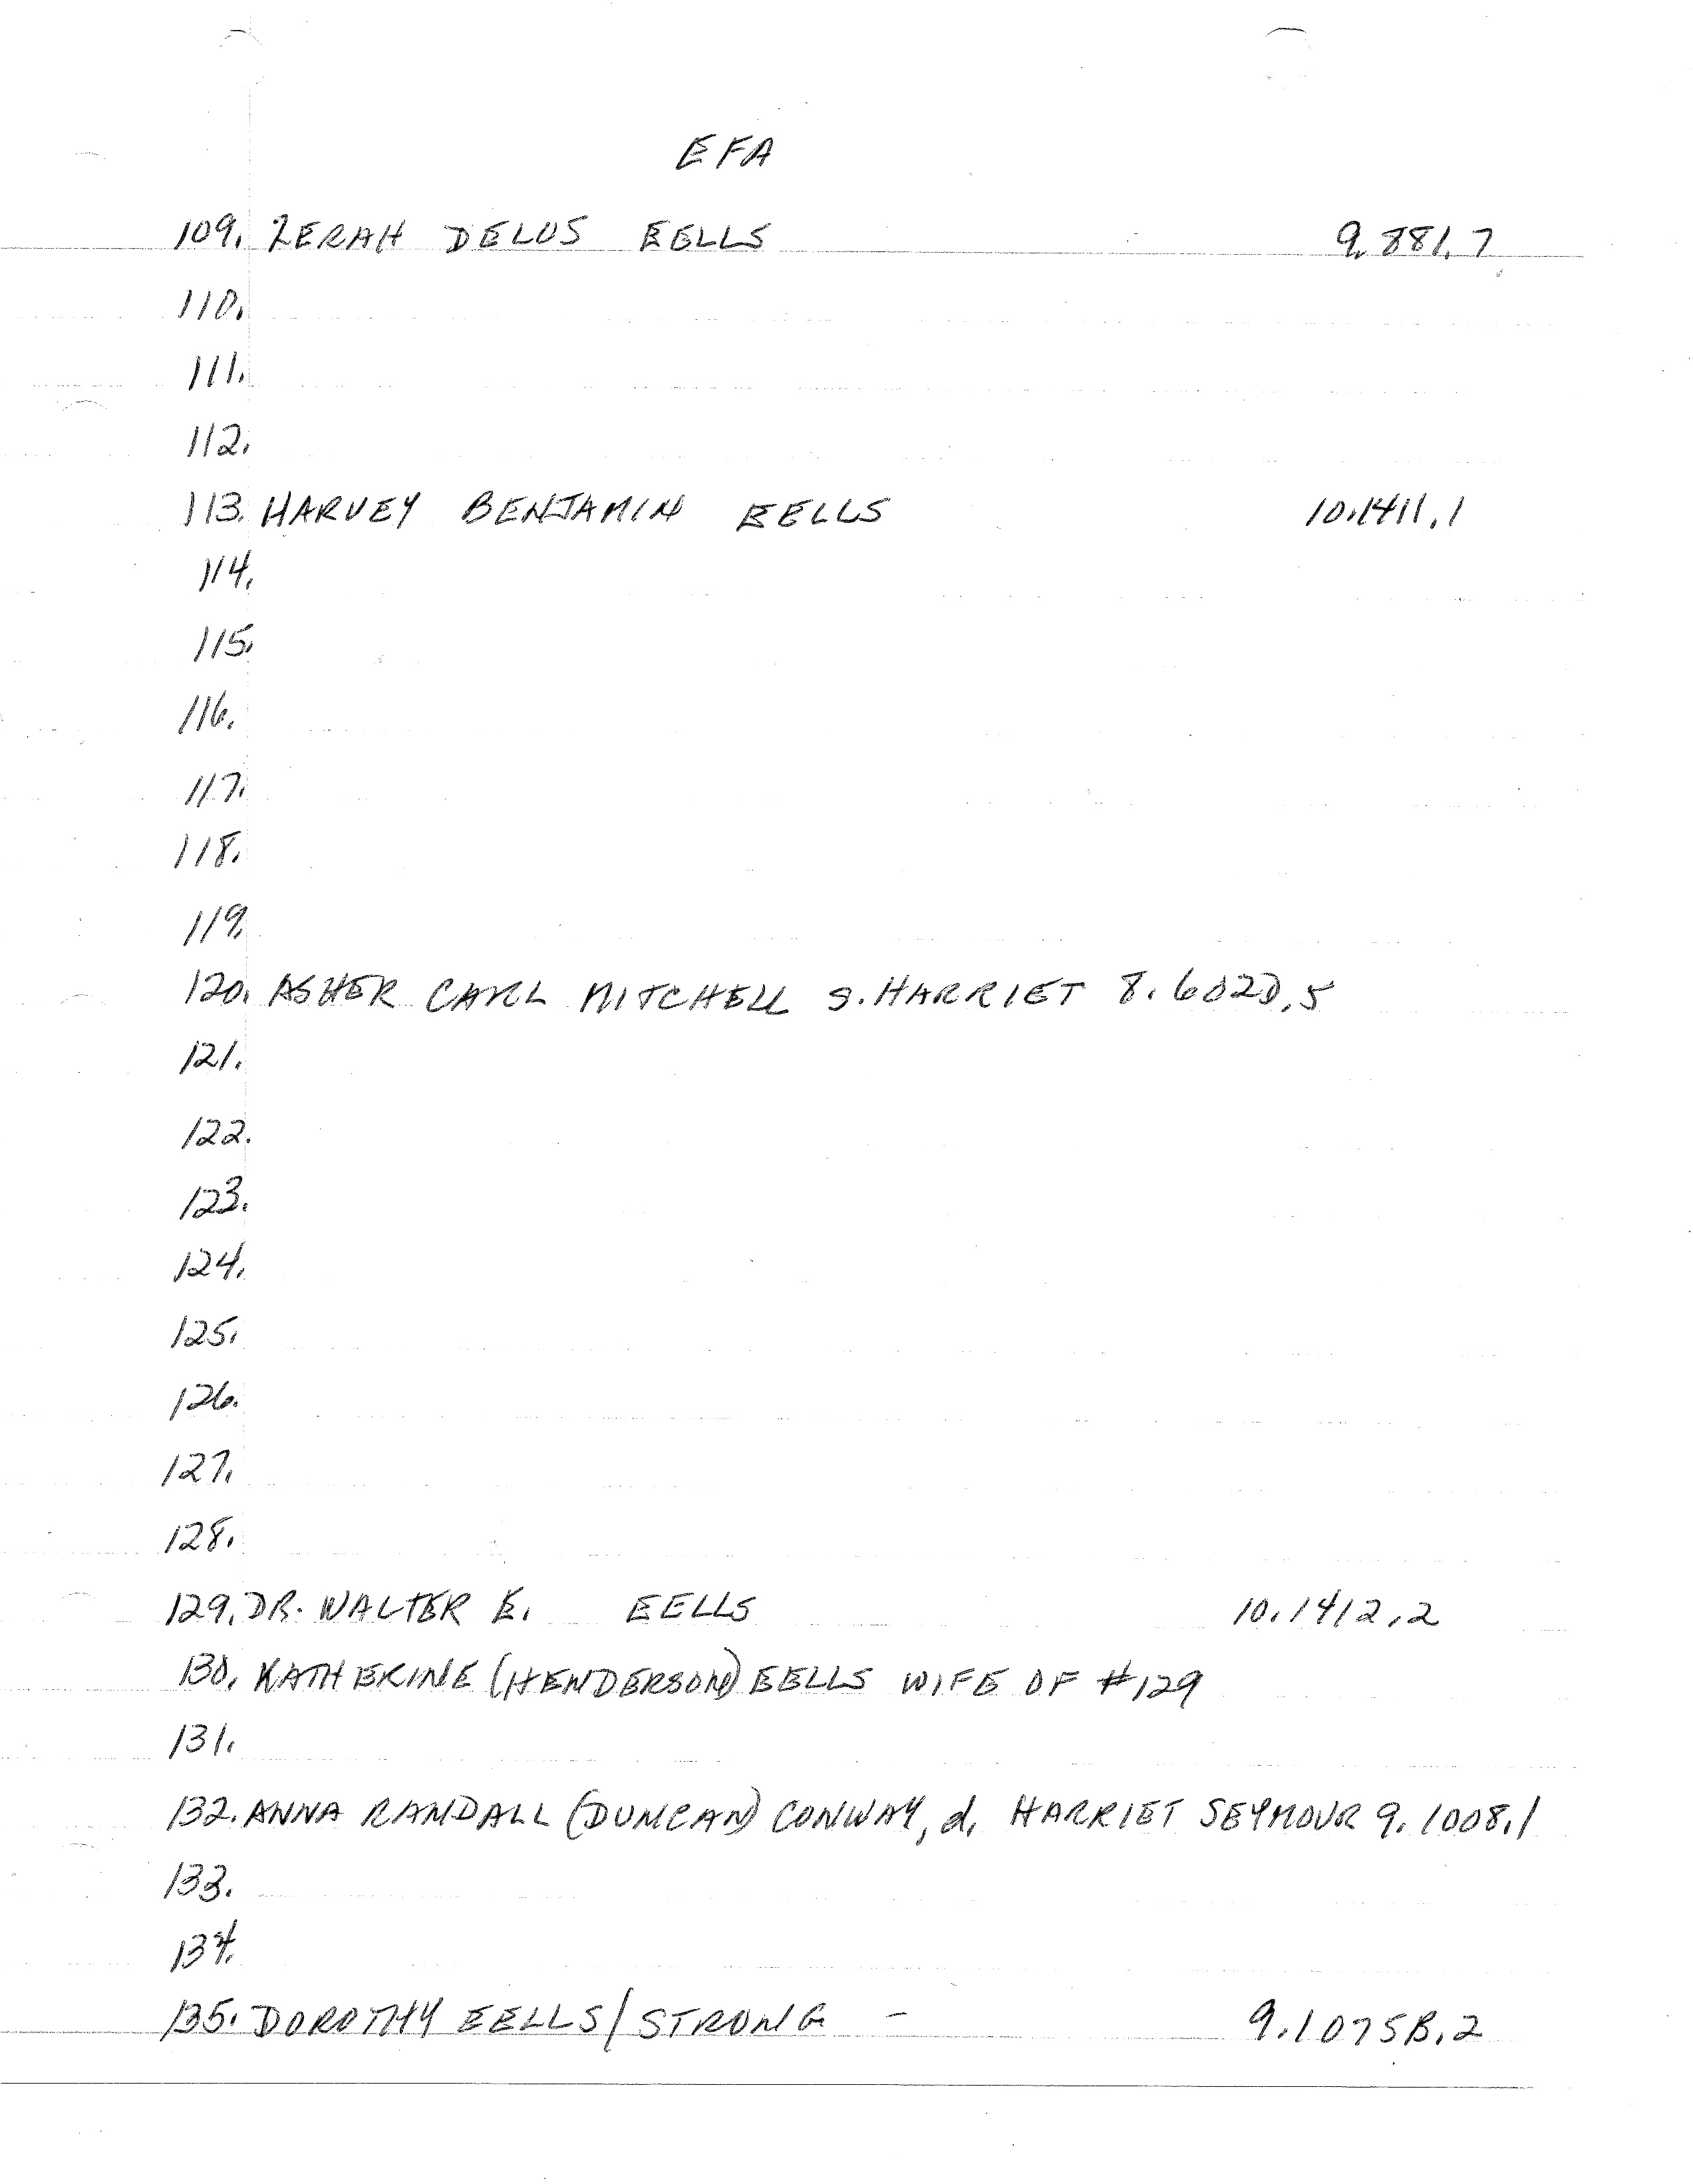 EFA
109. ZERAH DELOS EELLS 9.881.7
110.
111.
112.
113. HARVEY BENJAMIN EELLS 10.1411.1
114.
115.
116.
117.
118.
119.
120. ASHER CARL MITCHELL s. HARRIET 8.602D.5
121.
122.
123.
124.
125.
126.
127.
128.
129. DR. WALTER E. EELLS 10.1412.2
130. KATHERINE (HENDERSON) EELLS WIFE OF #129
131.
132. ANNA RANDALL (DUNCAN) CONWAY, d. HARRIET SEYMOUR 9.1008.1
133.
134.
135. DOROTHY EELLS/STRONG - 9.1075B.2